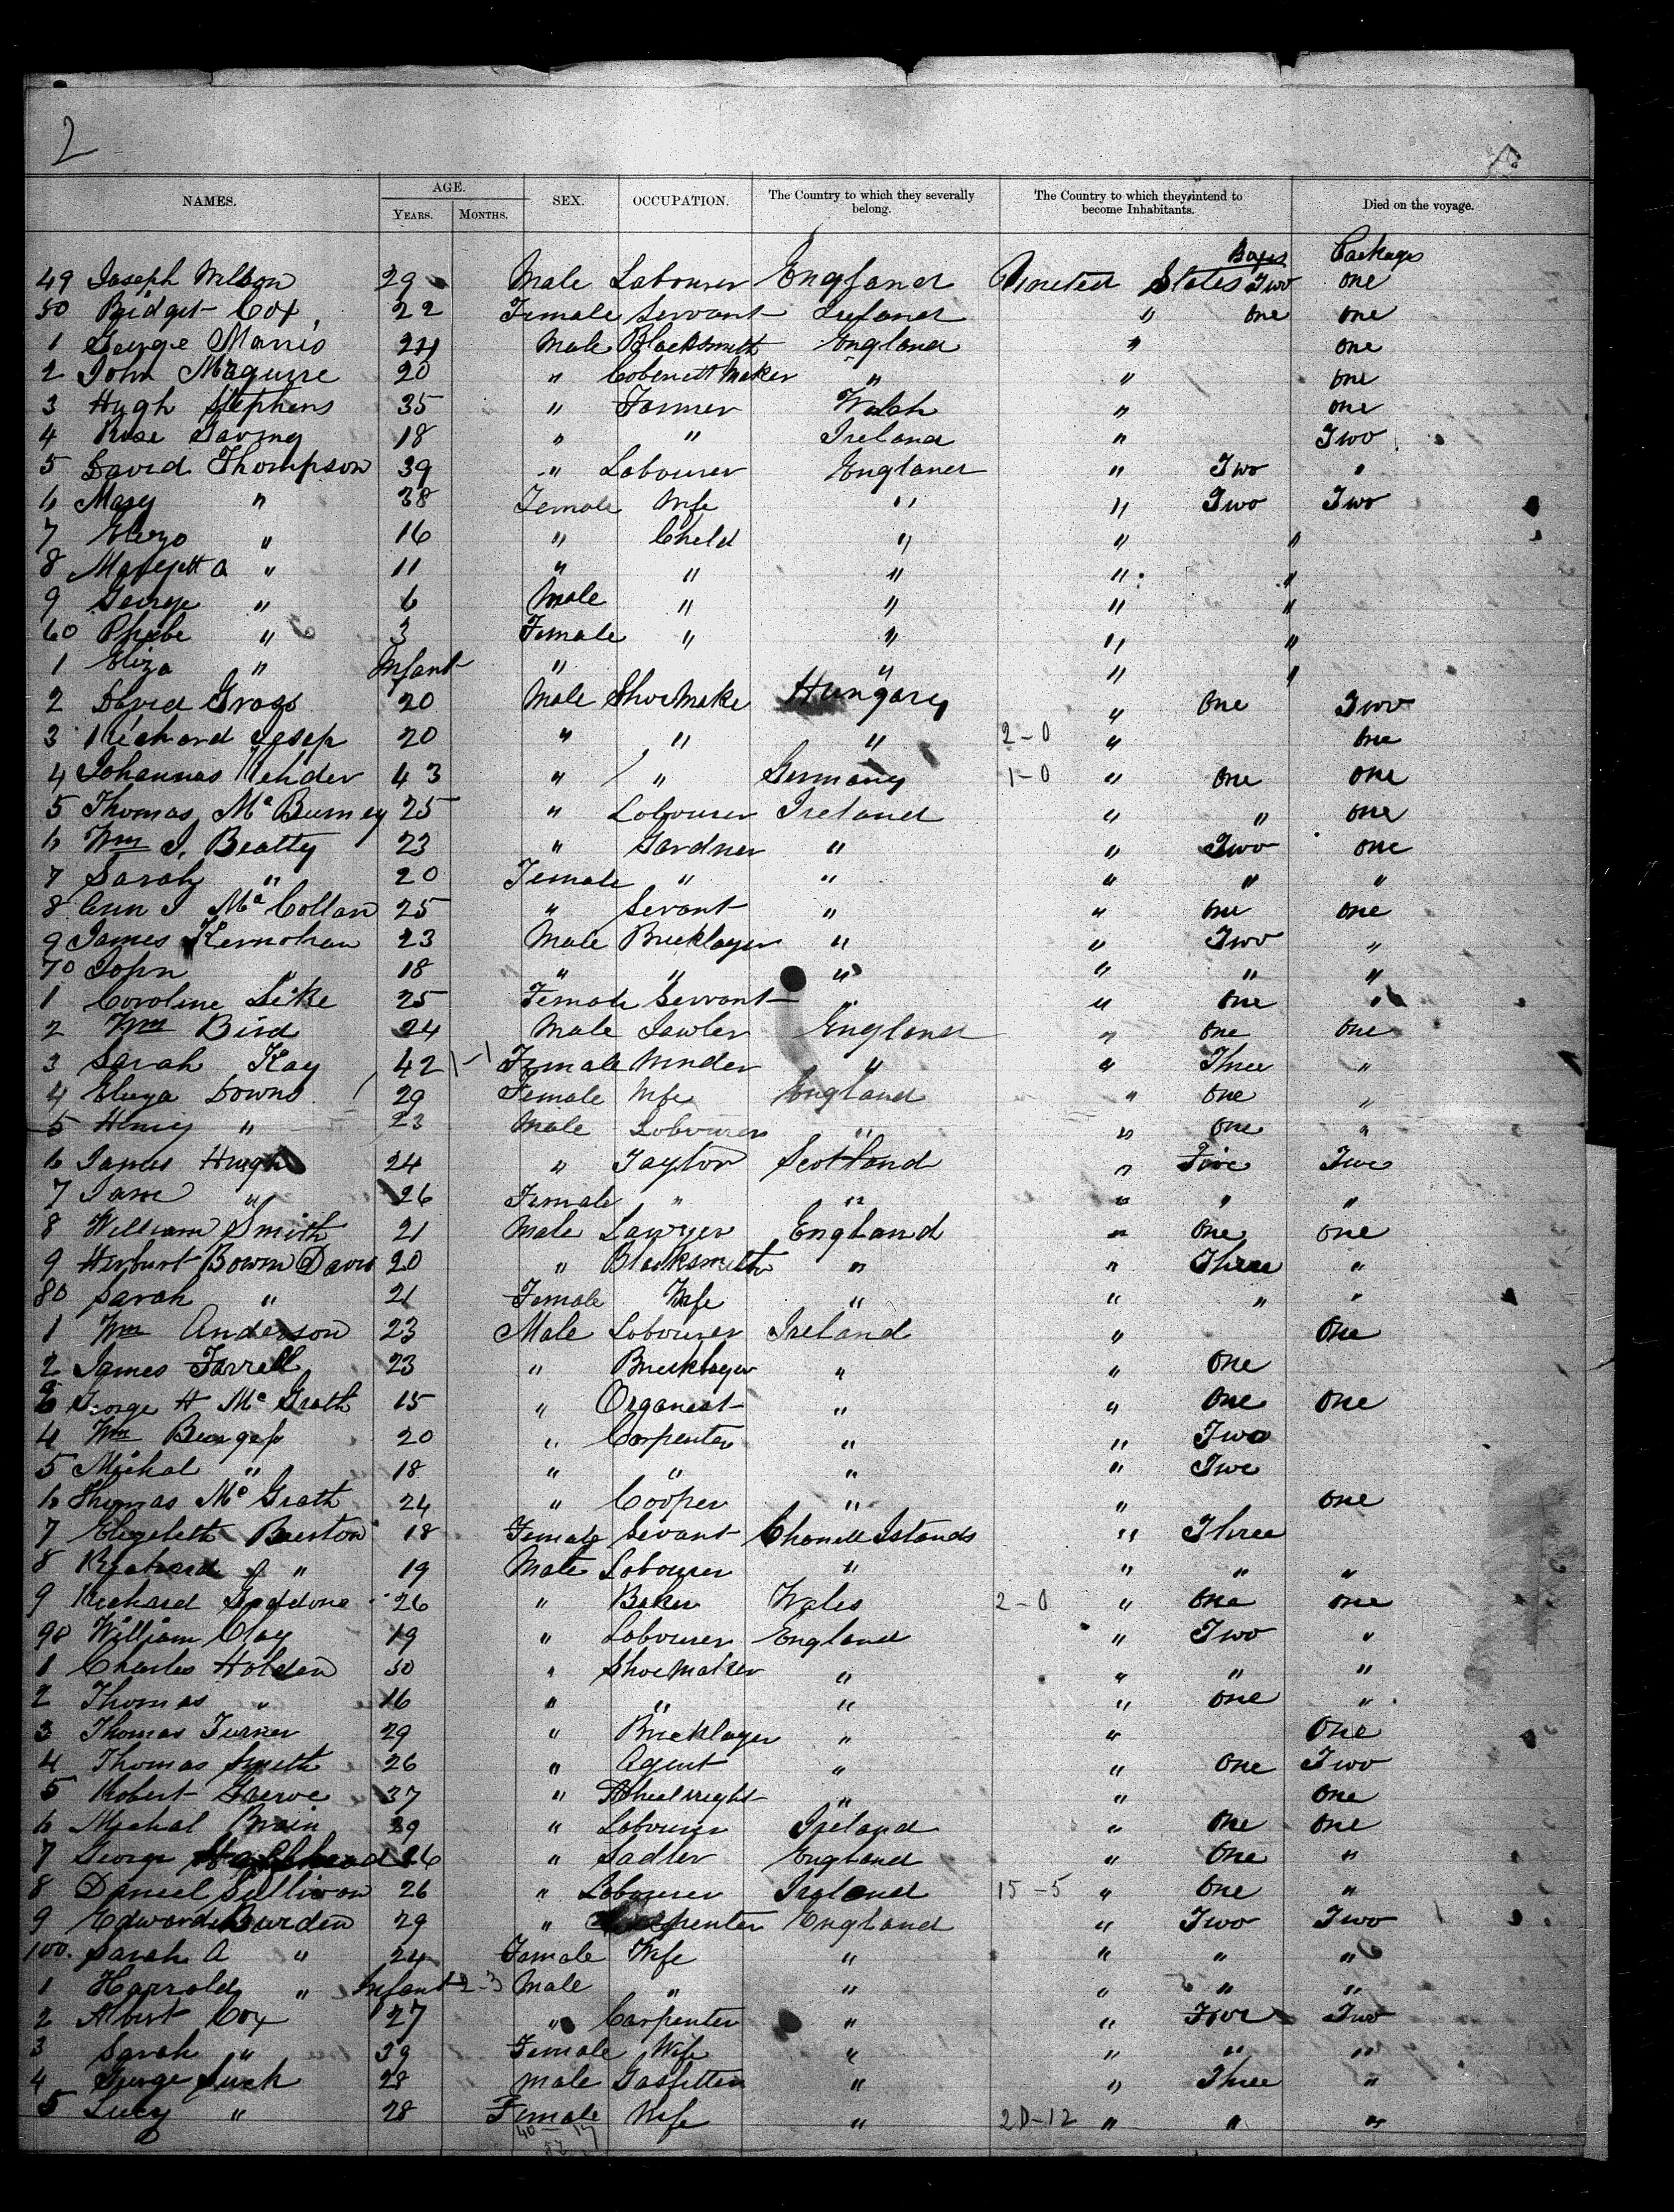 2
NAMES. AGE. YEARS. MONTHS. SEX. OCCUPATION. The Country to which they severally belong. The Country to which they intend to become Inhabitants. Died on the voyage.
Boxes Packages
49 Joseph Wilson 29 Male Labourer England United States Two one
50 Bridget Cox 22 Female Servant Ireland " one one
1 George Manis 24 Male Blacksmith England " one
2 John Maguire 20 " Cobenett Maker " " one
3 Hugh Stephens 35 " Farmer Welsh " one
4 Rose 18 " " Ireland " Two
5 David Thompson 39 " Labourer England " Two "
6 Mary " 38 Female Wife " " Two Two
7 Eliza " 16 " Child " " "
8 " 11 " " " " "
9 George " 6 Male " " " "
60 Phebe " 3 Female " " " "
1 Eliza " Infant " " " "
2 David Gross 20 Male Shoemake Hungary " One Two
3 Richard 20 " " " 2-0 " one
4 Johannas 43 " " Germany 1-0 " one one
5 Thomas McBurney 25 " Labourer Ireland " " one
6 Wm J. Beatty 23 " Gardner " " Two one
7 Sarah " 20 Female " " " " "
8 Ann J McCollan 25 " Sevant " " one one
9 James Kernohan 23 Male Bricklayer " " Two "
70 John " 18 " " " " " "
1 Caroline 25 Female Servant " " One "
2 Wm Bird 24 Male England " one one
3 Sarah Kay 42 1-1 Female Winder " " Three "
4 Eliza Downs 29 Female Wife England " One "
5 Henry " 23 Male Labourer " " One "
6 James Hugh 24 " Taylor Scotland " Five Two
7 Jane " 26 Female " " " " "
8 William Smith 21 Male Sawyer England " One one
9 Herburt Bowen Davis 20 " Blacksmith " " Three "
80 Sarah " 21 Female Wife " " " "
1 Wm Anderson 23 Male Labourer Ireland " One
2 James Farrell 23 " Bricklayer " " One
3 George H McGrath 15 " Organist " " One One
4 Wm Burgess 20 " Carpenter " " Two
5 Michal " 18 " " " " Two
6 Thomas McGrath 24 " Cooper " " One
7 Elizebeth 18 Female Sevant Chanell Islands " Three
8 Richard J " 19 Male Labourer " " " "
9 Richard 26 " Baker Wales 2-0 " One one
90 William Clay 19 " Labourer England " Two "
1 Charles Holden 50 " Shoe Maker " " " "
2 Thomas " 16 " " " " One "
3 Thomas Turner 29 " Bricklayer " " One
4 Thomas Smith 26 " Agent " " One Two
5 Robert 37 " Wheelwright " " One
6 Michal Brain 39 " Labourer Ireland " One One
7 George 26 " Sadler England " One "
8 Daniel Sullivan 26 " Labourer Ireland 15-5 " One "
9 Edward Burden 29 " Carpenter England " Two Two
100. Sarah A " 24 Female Wife " " " "
1 Harrold " Infant 2-3 Male " " " " "
2 Albert Cox 27 " Carpenter " " Two
3 Sarah " 39 Female Wife " " " "
4 George 28 Male Gasfitter " " Three "
5 Lucy " 28 Female Wife " 20-12 " " "